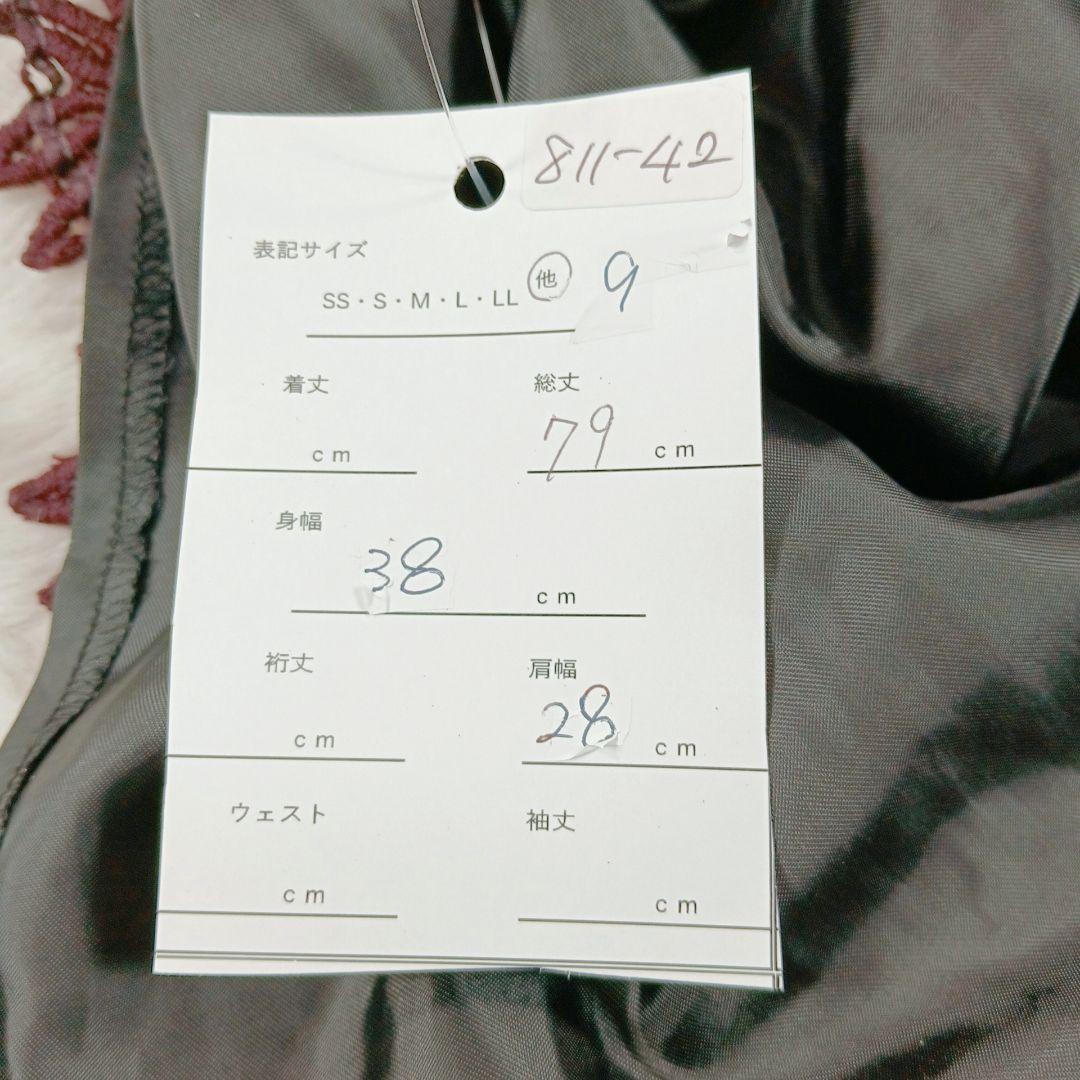 811-42
表記サイズ
SS・S・M・L・LL 他 9
着丈 総丈
cm 79 cm
身幅
38 cm
裄丈 肩幅
cm 28 cm
ウェスト 袖丈
cm cm